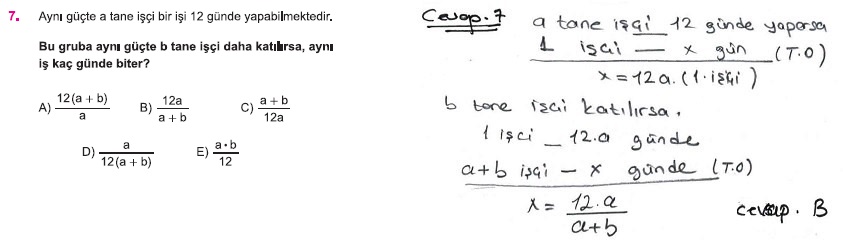 7. Aynı güçte a tane işçi bir işi 12 günde yapabilmektedir.
Bu gruba aynı güçte b tane işçi daha katılırsa, aynı
iş kaç günde biter?
A) 12(a + b) / a B) 12a / a + b C) a + b / 12a
D) a / 12(a + b) E) a • b / 12
Cevap.7
a tane işçi 12 günde yaparsa
1 işçi — x gün (T.O)
x = 12a. (1. işçi)
b tane işçi katılırsa,
1 işçi _ 12.a günde
a+b işçi — x günde (T.O)
x = 12.a / a+b
cevap. B